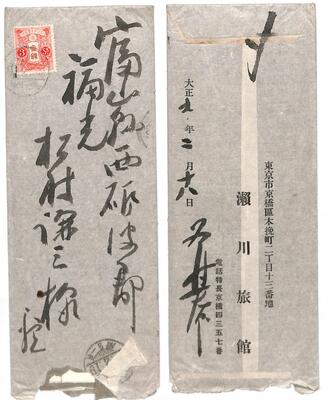 富山縣西砺波郡
福光
松村謙三様
大正九年二月十六日
東京市京橋區木挽町二丁目十三番地
瀬川旅館
電話特長京橋四三五七番